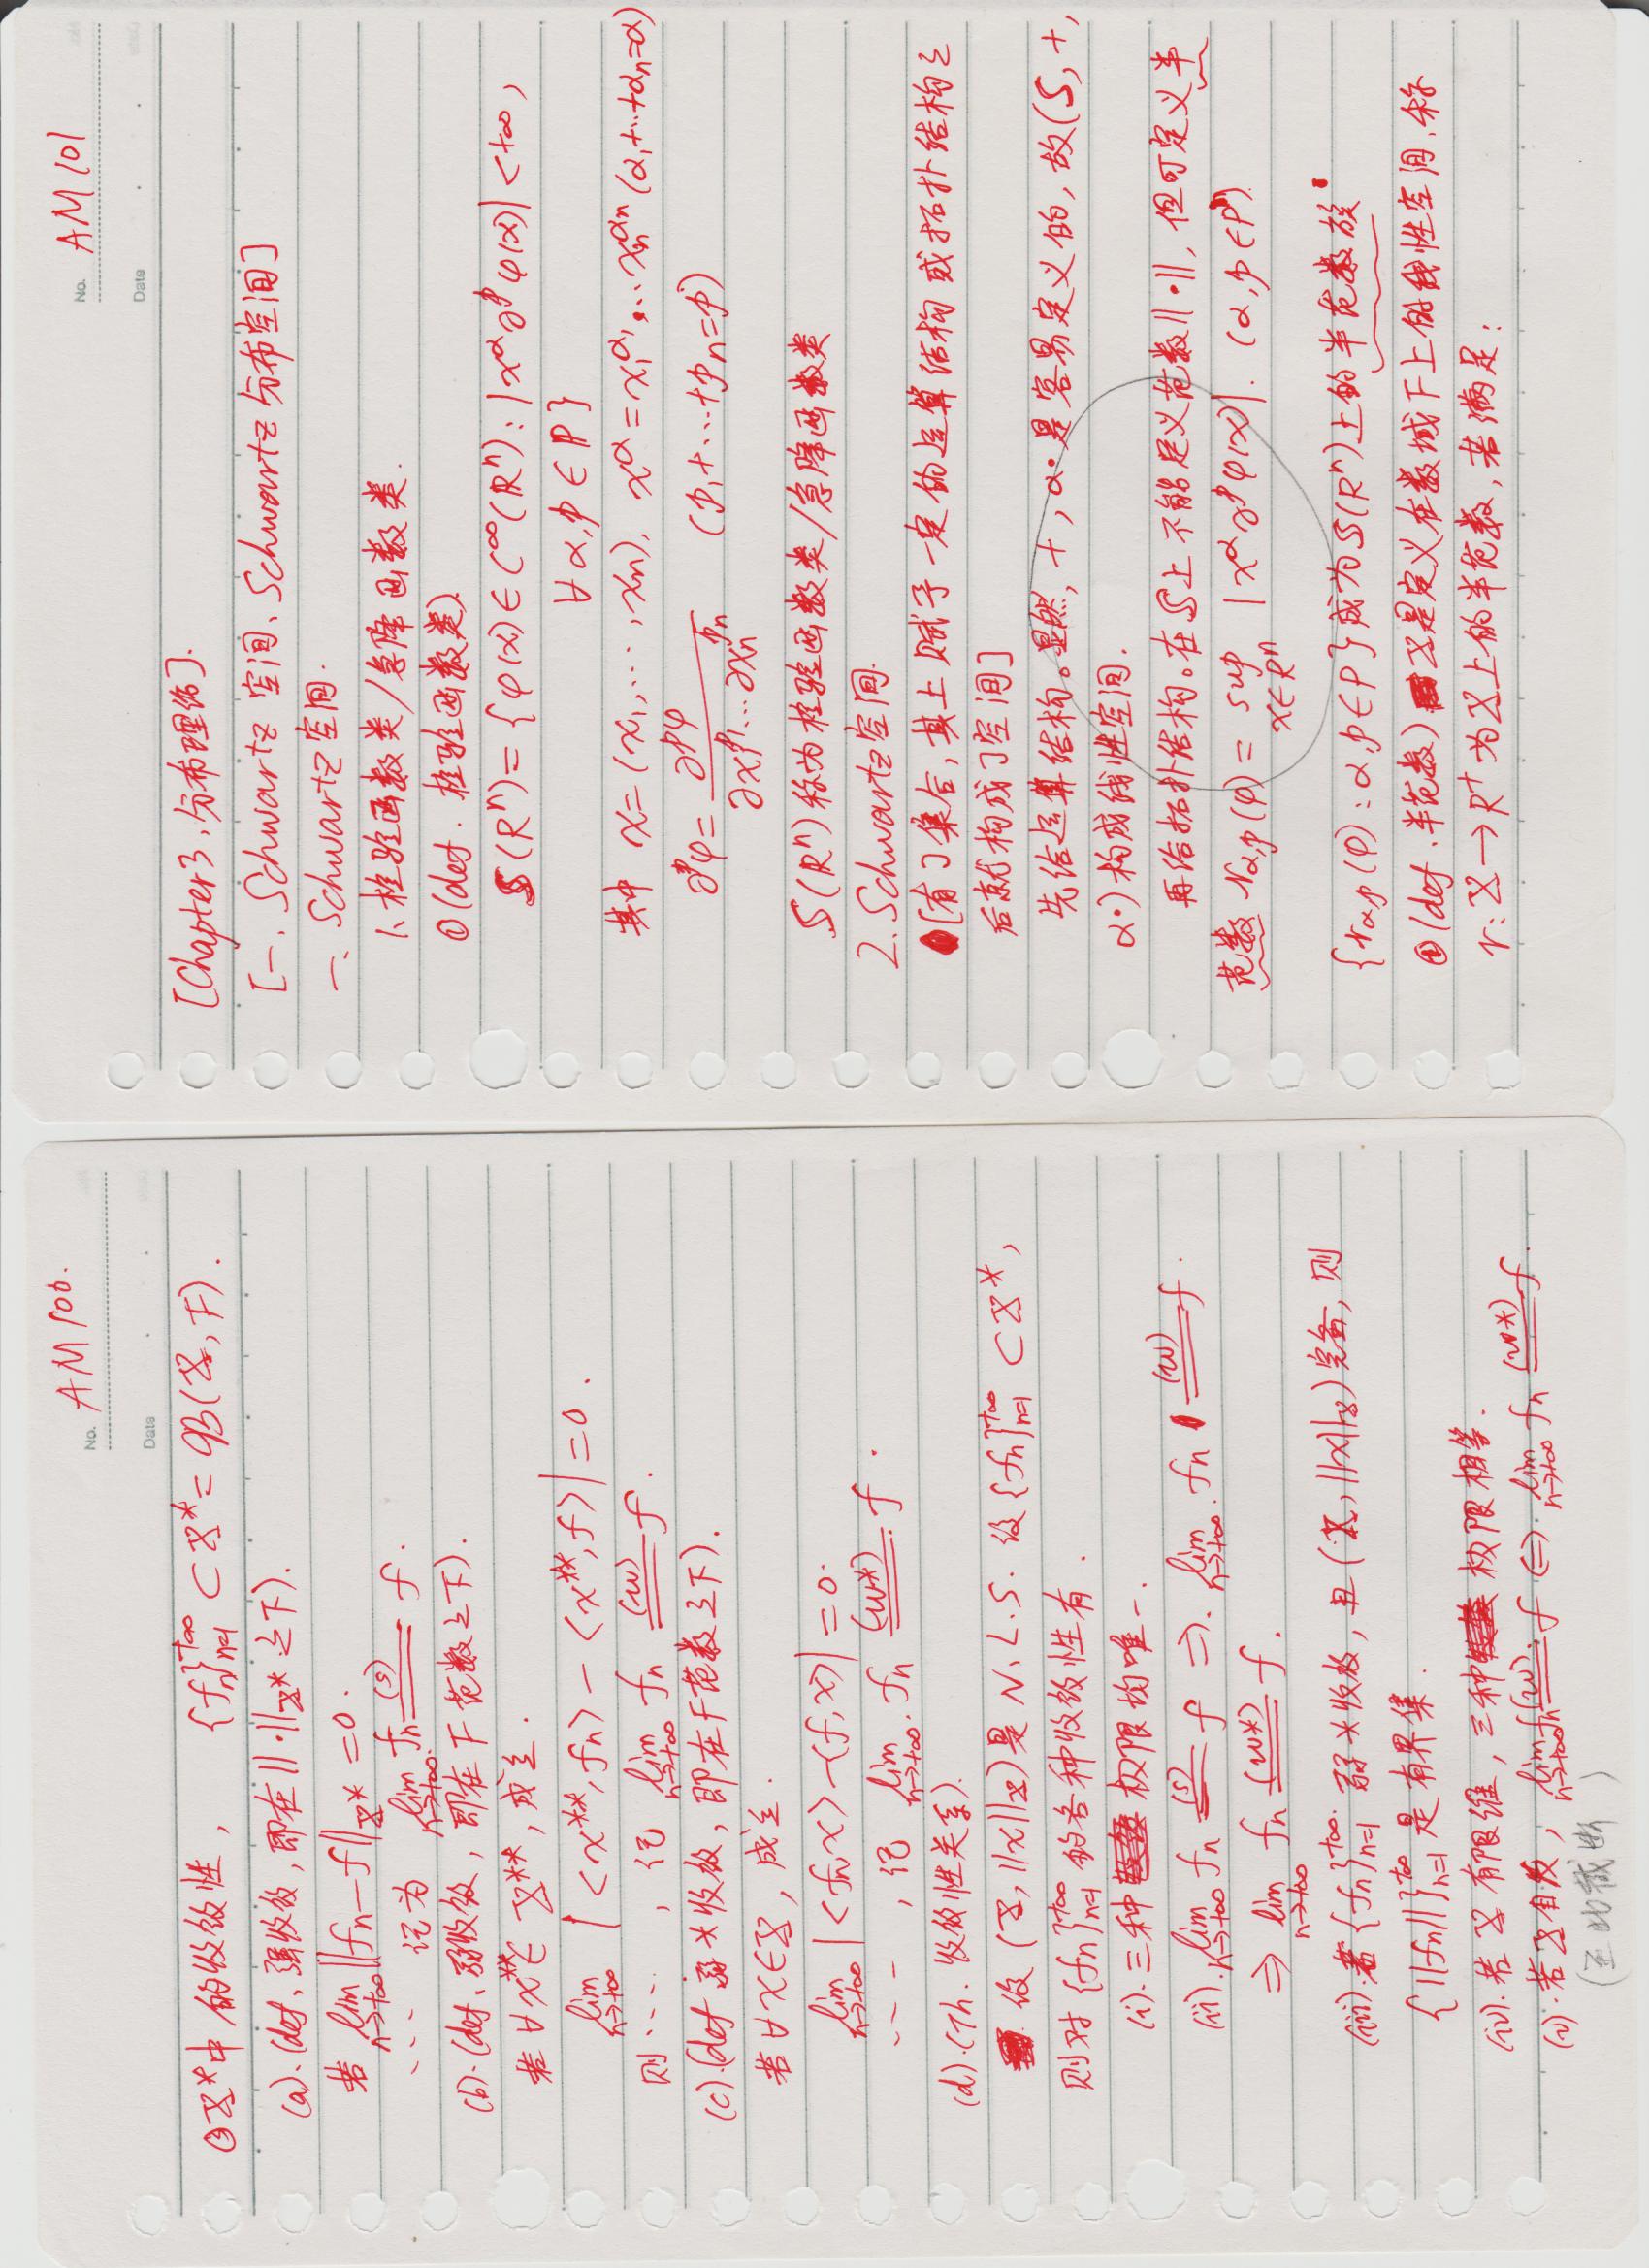 No. AM100.
Date
③ X*中的收敛性, {fn}_{n=1}^{+∞} ⊂ X* = B(X, F).
(a). (def. 强收敛, 即在||·||_{X*}之下).
若 lim_{n→+∞} ||fn−f||_{X*} = 0.
... 记为 lim_{n→+∞} fn (s)= f.
(b). (def. 弱收敛, 即在F范数之下).
若 ∀x** ∈ X**, 成立.
lim_{n→+∞} |<x**, fn> − <x**, f>| = 0.
则 ... , 记 lim_{n→+∞} fn (w)= f.
(c). (def 弱*收敛, 即在F范数之下).
若 ∀x∈X, 成立.
lim_{n→+∞} |<fn, x> − <f, x>| = 0.
... , 记 lim_{n→+∞} fn (w*)= f.
(d). (Th. 收敛性关系).
设 (X, ||x||_X) 是 N.L.S. 设 {fn}_{n=1}^{+∞} ⊂ X*,
则对 {fn}_{n=1}^{+∞} 的各种收敛性有.
(i). 三种 极限均唯一.
(ii). lim_{n→+∞} fn (s)= f ⇒. lim_{n→+∞} fn (w)= f.
⇒ lim_{n→+∞} fn (w*)= f.
(iii). 若 {fn}_{n=1}^{+∞} 弱*收敛, 且 (X, ||x||_X) 完备, 则
{||fn||}_{n=1}^{+∞} 是有界集.
(iv). 若 X 有限维, 三种 极限相等.
(v). 若 X 自反, lim_{n→+∞} fn (w)= f ⇔ lim_{n→+∞} fn (w*)= f.
(至此截断 )
No. AM101
Date
[Chapter3, 分布理论].
[一. Schwartz 空间、Schwartz 分布空间]
一、Schwartz空间.
1. 检验函数类/急降函数类.
①(def. 检验函数类).
S(Rⁿ) = {φ(x) ∈ C^∞(Rⁿ): |x^α ∂^p φ(x)| < +∞,
∀ α, p ∈ P}
其中 x = (x₁, ..., xn), x^α = x₁^{α₁}...xn^{αn} (α₁+...+αn=α)
∂^pφ = ∂^pφ / ∂x^{p₁}...∂xn^{pn} (p₁+...+pn=p)
S(Rⁿ) 称为检验函数类/急降函数类
2. Schwartz空间.
[有了集合, 其上赋予一定的运算结构或拓扑结构之
后就构成了空间]
先给运算结构。显然, +, α· 是容易定义的, 故(S, +,
α·) 构成线性空间.
再给拓扑结构。在S上不能定义范数||·||, 但可定义半
范数 r_{α,p}(φ) = sup_{x∈Rⁿ} |x^α ∂^p φ(x)|. (α, p ∈ Pⁿ)
{r_{α,p}(φ): α, p∈P} 成为 S(Rⁿ) 上的半范数族
①(def. 半范数) X是定义在数域F上的线性空间, 称
r: X → R⁺ 为X上的半范数, 若满足: